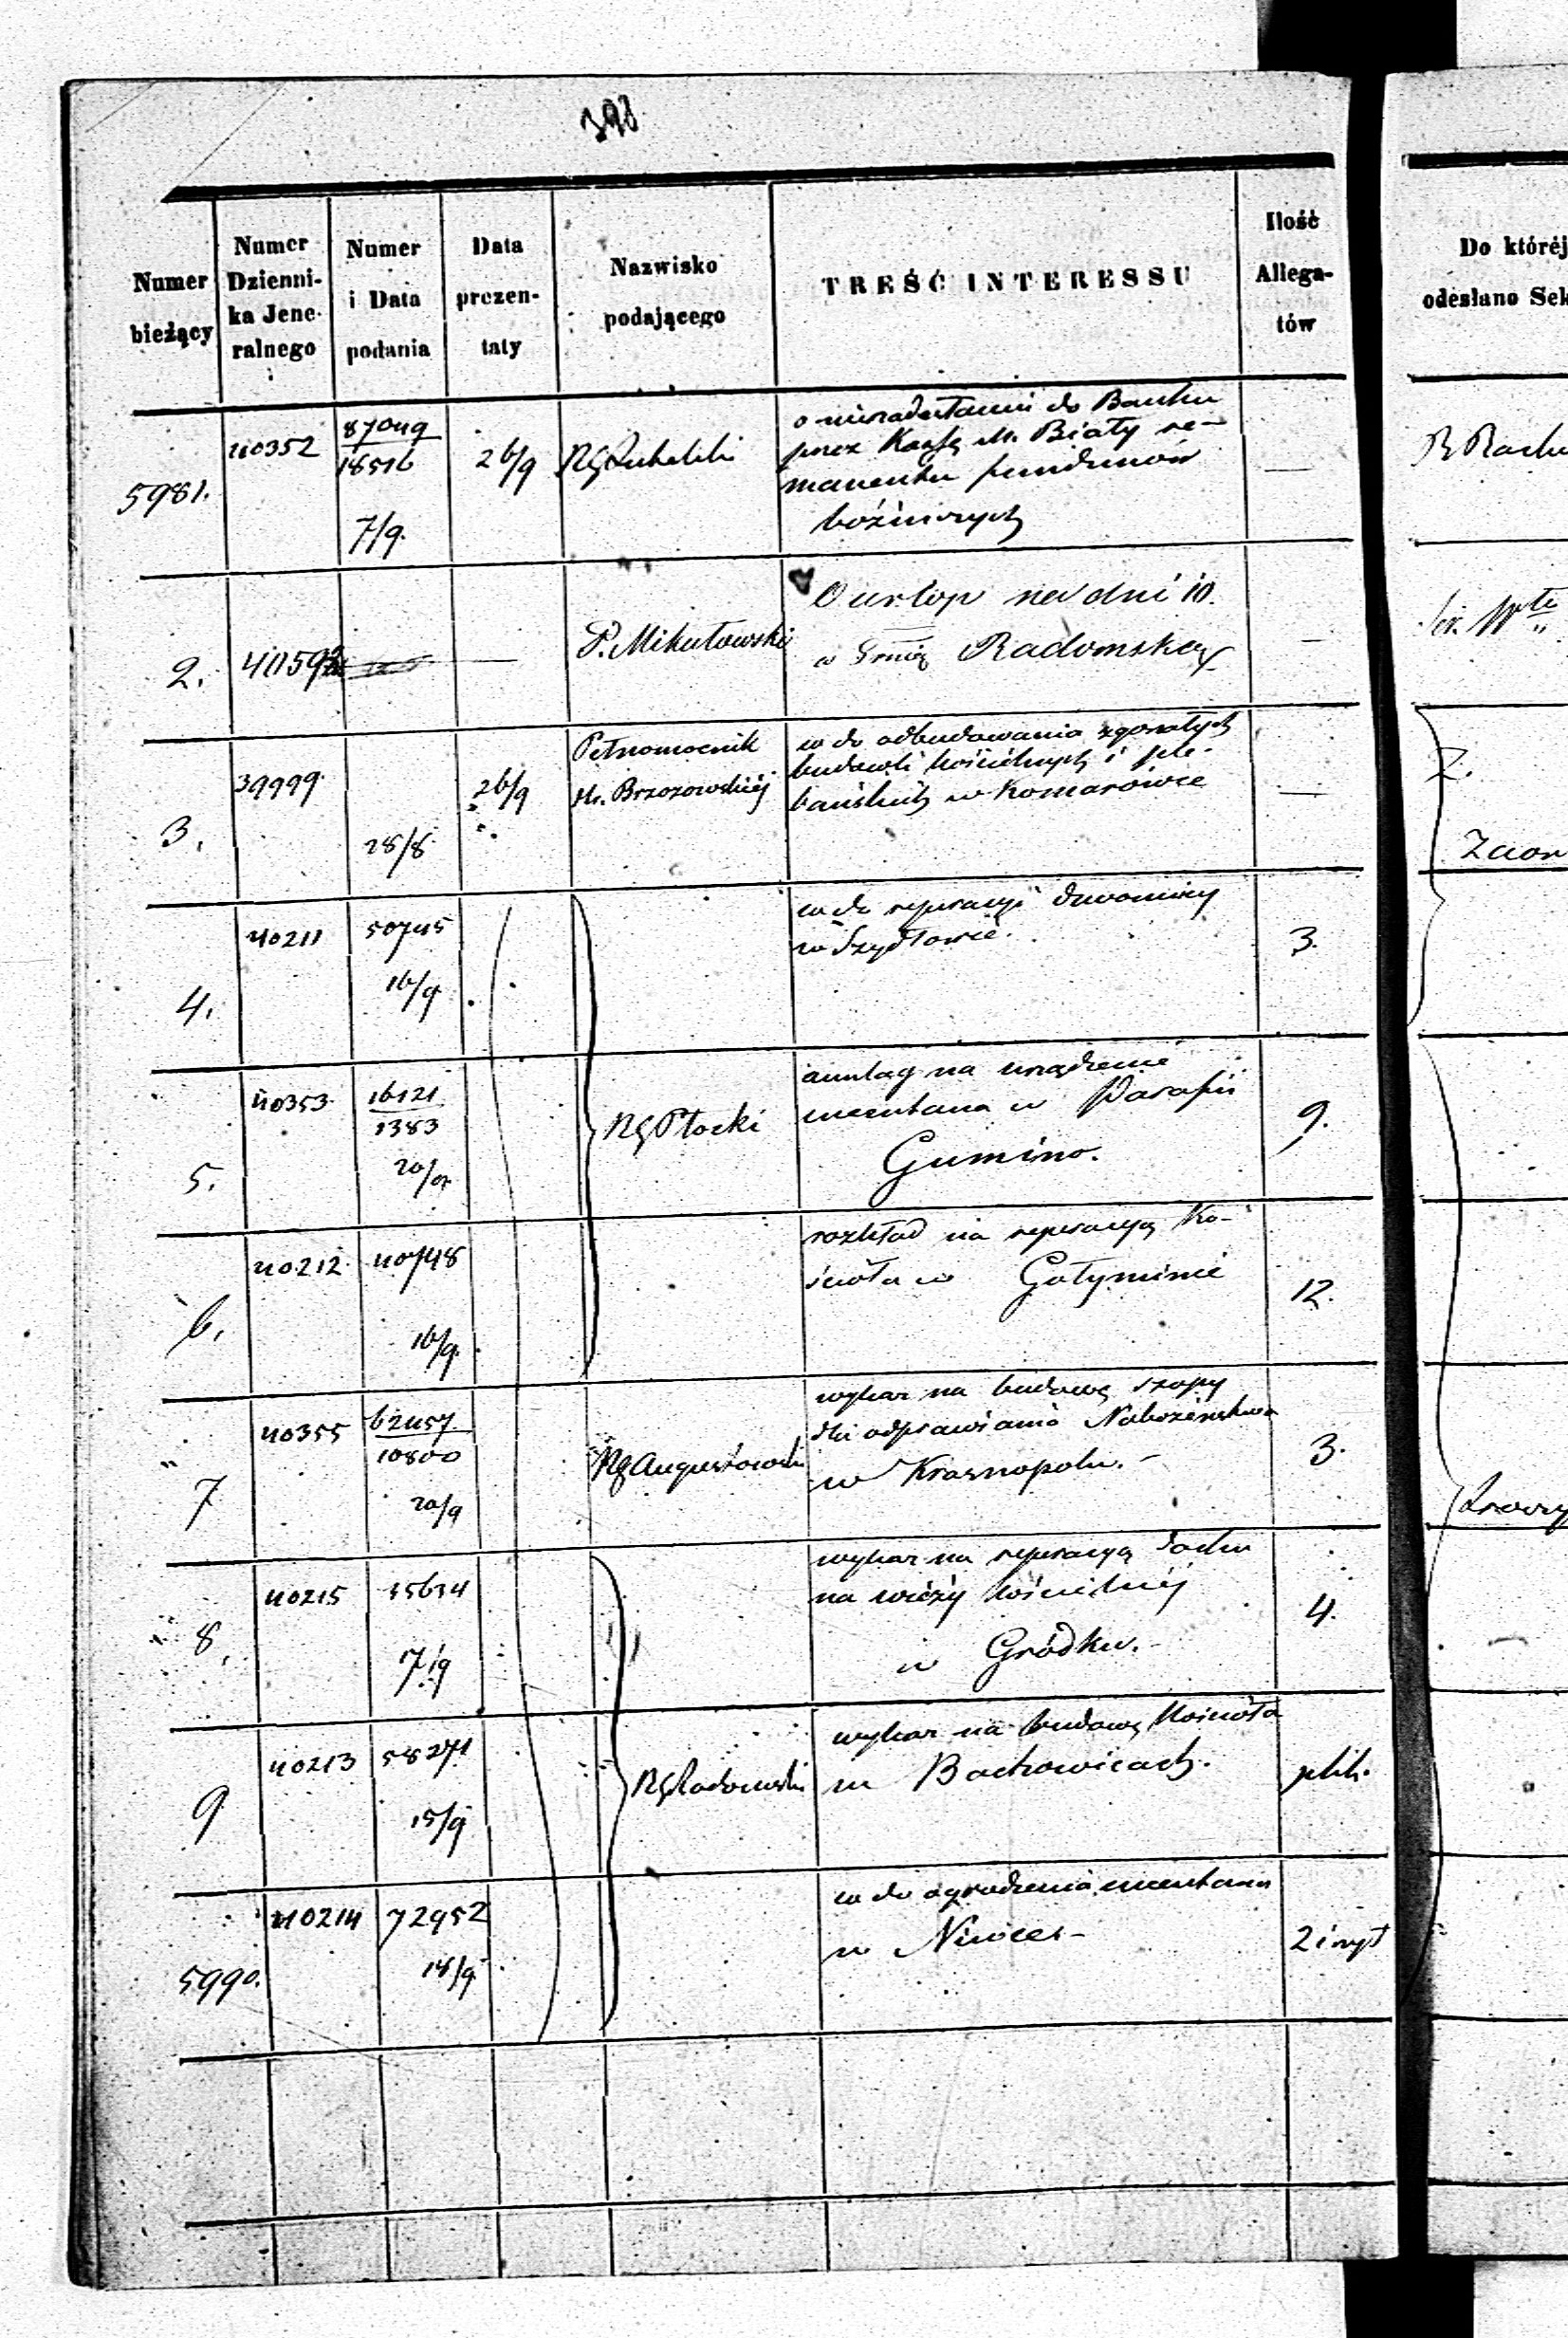 398
Numer bieżący
Numer Dzienni- ka Jene- ralnego
Numer i Data podania
Data prezen- taty
Nazwisko podającego
TREŚĆ INTERESSU
Ilość Allega- tów
Do któréj odesłano Sek
5981.
40352
87049
18516
7/9.
26/9
RG Lubelski
o niezadesłaniu do Banku
przez Kassę M. Biały re-
manentu funduszów
bóżniczych
—
2.
—
P. Mikułowski
O urlop na dni 10.
w Gnią Radomskey
—
3.
39999.
28/8
26/9
Pełnomocnik
Hr. Brzozowskiéj
w do odbudowania zgorzałych
budowli kościelnych i ple-
bańskich w Komarowie
—
4.
40211
50745
16/9
w do reperacyi dzwonnicy
w Szydłowie.
3.
5.
40353.
16121
1383
20/9
RG Płocki
anszlag na urządzenie
cmentarza w Parafii
Gumino.
9.
6.
40212
40748
16/9.
rozkład na reperacyą Ko-
ścioła w Gołyminie
12.
7
40355
62457
10800
20/9
RG Augustowski
wykaz na budowę szopy
dla odprawiania Nabożeństwa
w Krasnopolu.-
3.
8.
40215
35634
7/9
wykaz na reperacyą dachu
na wieży kościelnéj
w Gródku.-
4.
9
40213
58271
15/9
RG Radomski
wykaz na budowę Kościoła
w Bachowicach.
plik.
5990.
40214
72952
18/9
w do ogrodzenia cmentarza
w